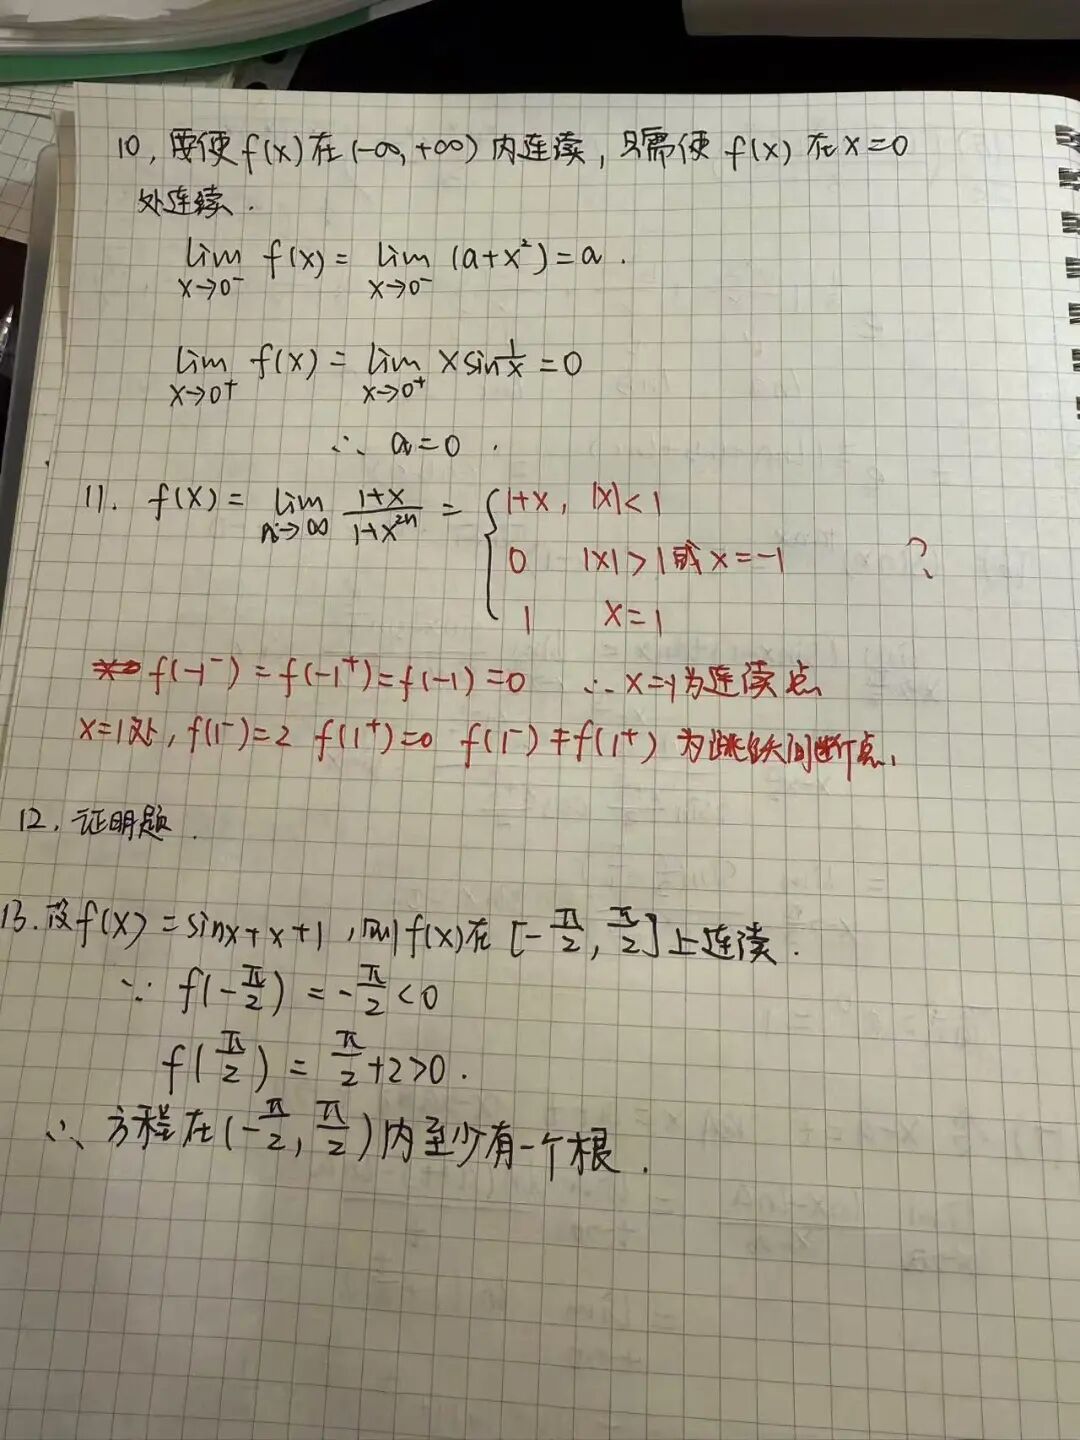 10, 要使f(x)在(-∞,+∞)内连续,只需使f(x)在x=0
处连续.
lim f(x)= lim (a+x²)=a.
x→0⁻ x→0⁻
lim f(x)= lim xsin1/x=0
x→0⁺ x→0⁺
∴ a=0.
11. f(x)= lim n→∞ (1+x)/(1+x²ⁿ) = { 1+x, |x|<1
0 |x|>1或x=-1 ?
1 x=1
f(-1⁻)=f(-1⁺)=f(-1)=0 ∴x=-1为连续点
x=1处,f(1⁻)=2 f(1⁺)=0 f(1⁻)≠f(1⁺) 为跳跃间断点.
12. 证明题.
13. 设f(x)=sinx+x+1,则f(x)在[-π/2,π/2]上连续.
∵ f(-π/2)=-π/2<0
f(π/2)=π/2+2>0.
∴ 方程在(-π/2,π/2)内至少有一个根.